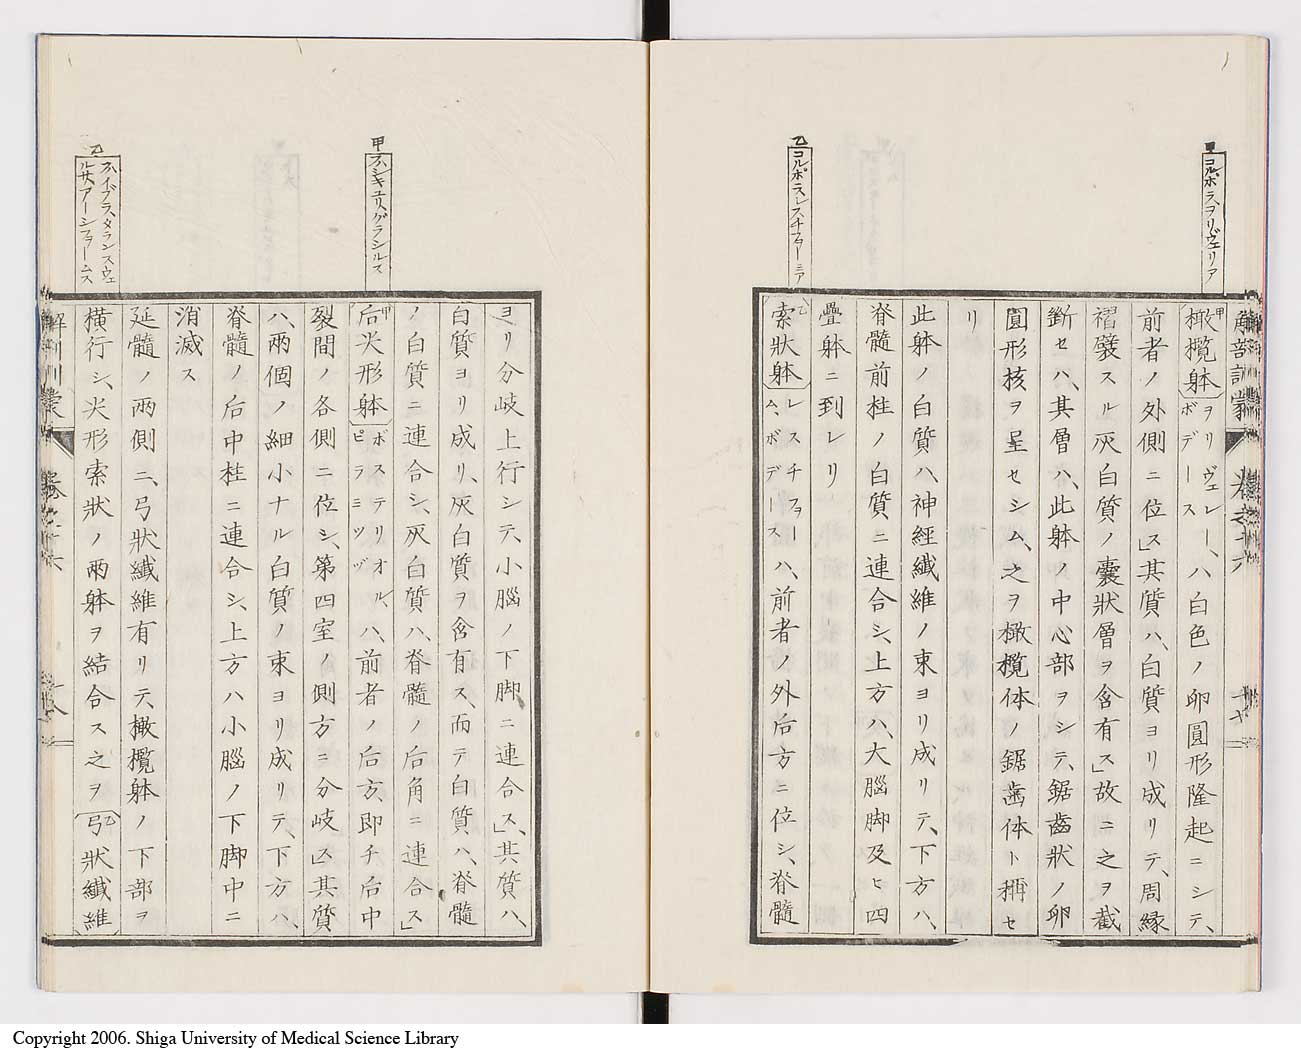 甲
コルポラ、ヲリヴェリア
乙
コルポラ、レスチフォーミア
解剖訓蒙
卷之十六
十七
橄欖躰ヲリヴェレー、ボデースハ白色ノ卵圓形隆起ニシテ、
前者ノ外側ニ位ス」其質ハ、白質ヨリ成リテ、周縁
褶襞スル灰白質ノ囊狀層ヲ含有ス」故ニ之ヲ截
斷セハ、其層ハ、此躰ノ中心部ヲシテ、鋸齒狀ノ卵
圓形核ヲ呈セシム、之ヲ橄欖体ノ鋸歯体ト稱セ
リ
此躰ノ白質ハ、神經纖維ノ束ヨリ成リテ、下方ハ、
脊髓前柱ノ白質ニ連合シ、上方ハ、大腦脚及ヒ四
疊躰ニ到レリ
乙索狀躰レスチフォーム、ボデースハ、前者ノ外后方ニ位シ、脊髓
甲
乙
ヨリ分岐上行シテ、小腦ノ下脚ニ連合ス」其質ハ、
白質ヨリ成リ、灰白質ヲ含有ス、而テ白質ハ、脊髓
ノ白質ニ連合シ、灰白質ハ、脊髓ノ后角ニ連合ス」
甲后尖形躰ポステリオル、ピラミツヅハ、前者ノ后方、即チ后中
裂間ノ各側ニ位シ、第四室ノ側方ニ分岐ス」其質
ハ、兩個ノ細小ナル白質ノ束ヨリ成リテ、下方ハ、
脊髓ノ后中柱ニ連合シ、上方ハ小腦ノ下脚中ニ
消滅ス
延髓ノ兩側ニ、弓狀纖維有リテ、橄欖躰ノ下部ヲ
橫行シ、尖形索狀ノ兩躰ヲ結合ス之ヲ乙弓狀纖維
解剖訓蒙
卷之十六
十八
Copyright 2006. Shiga University of Medical Science Library